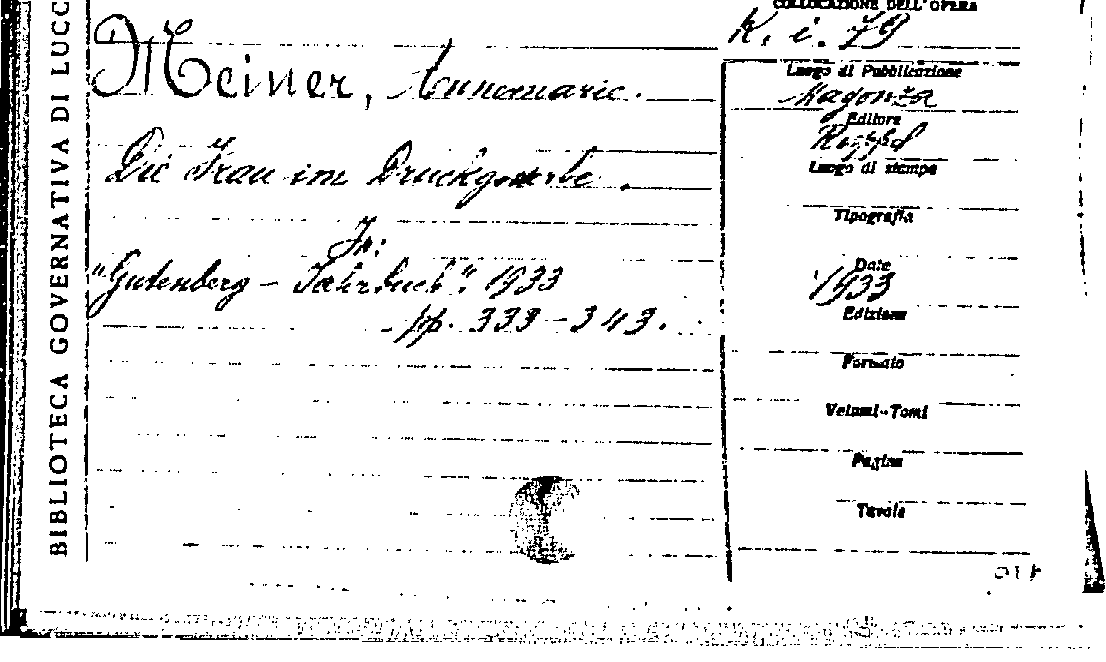 BIBLIOTECA GOVERNATIVA DI LUCC
COLLOCAZIONE DELL'OPERA
K. i. 79
Meiner, Annemarie.
Die Frau im Druckgewerbe.
In:
"Gutenberg - Jahrbuch". 1933
- pp. 333-343.
Luogo di Pubblicazione
Magonza
Editore
Luogo di stampa
Tipografia
Date
1933
Edizione
Formato
Volumi-Tomi
Pagine
Tavole